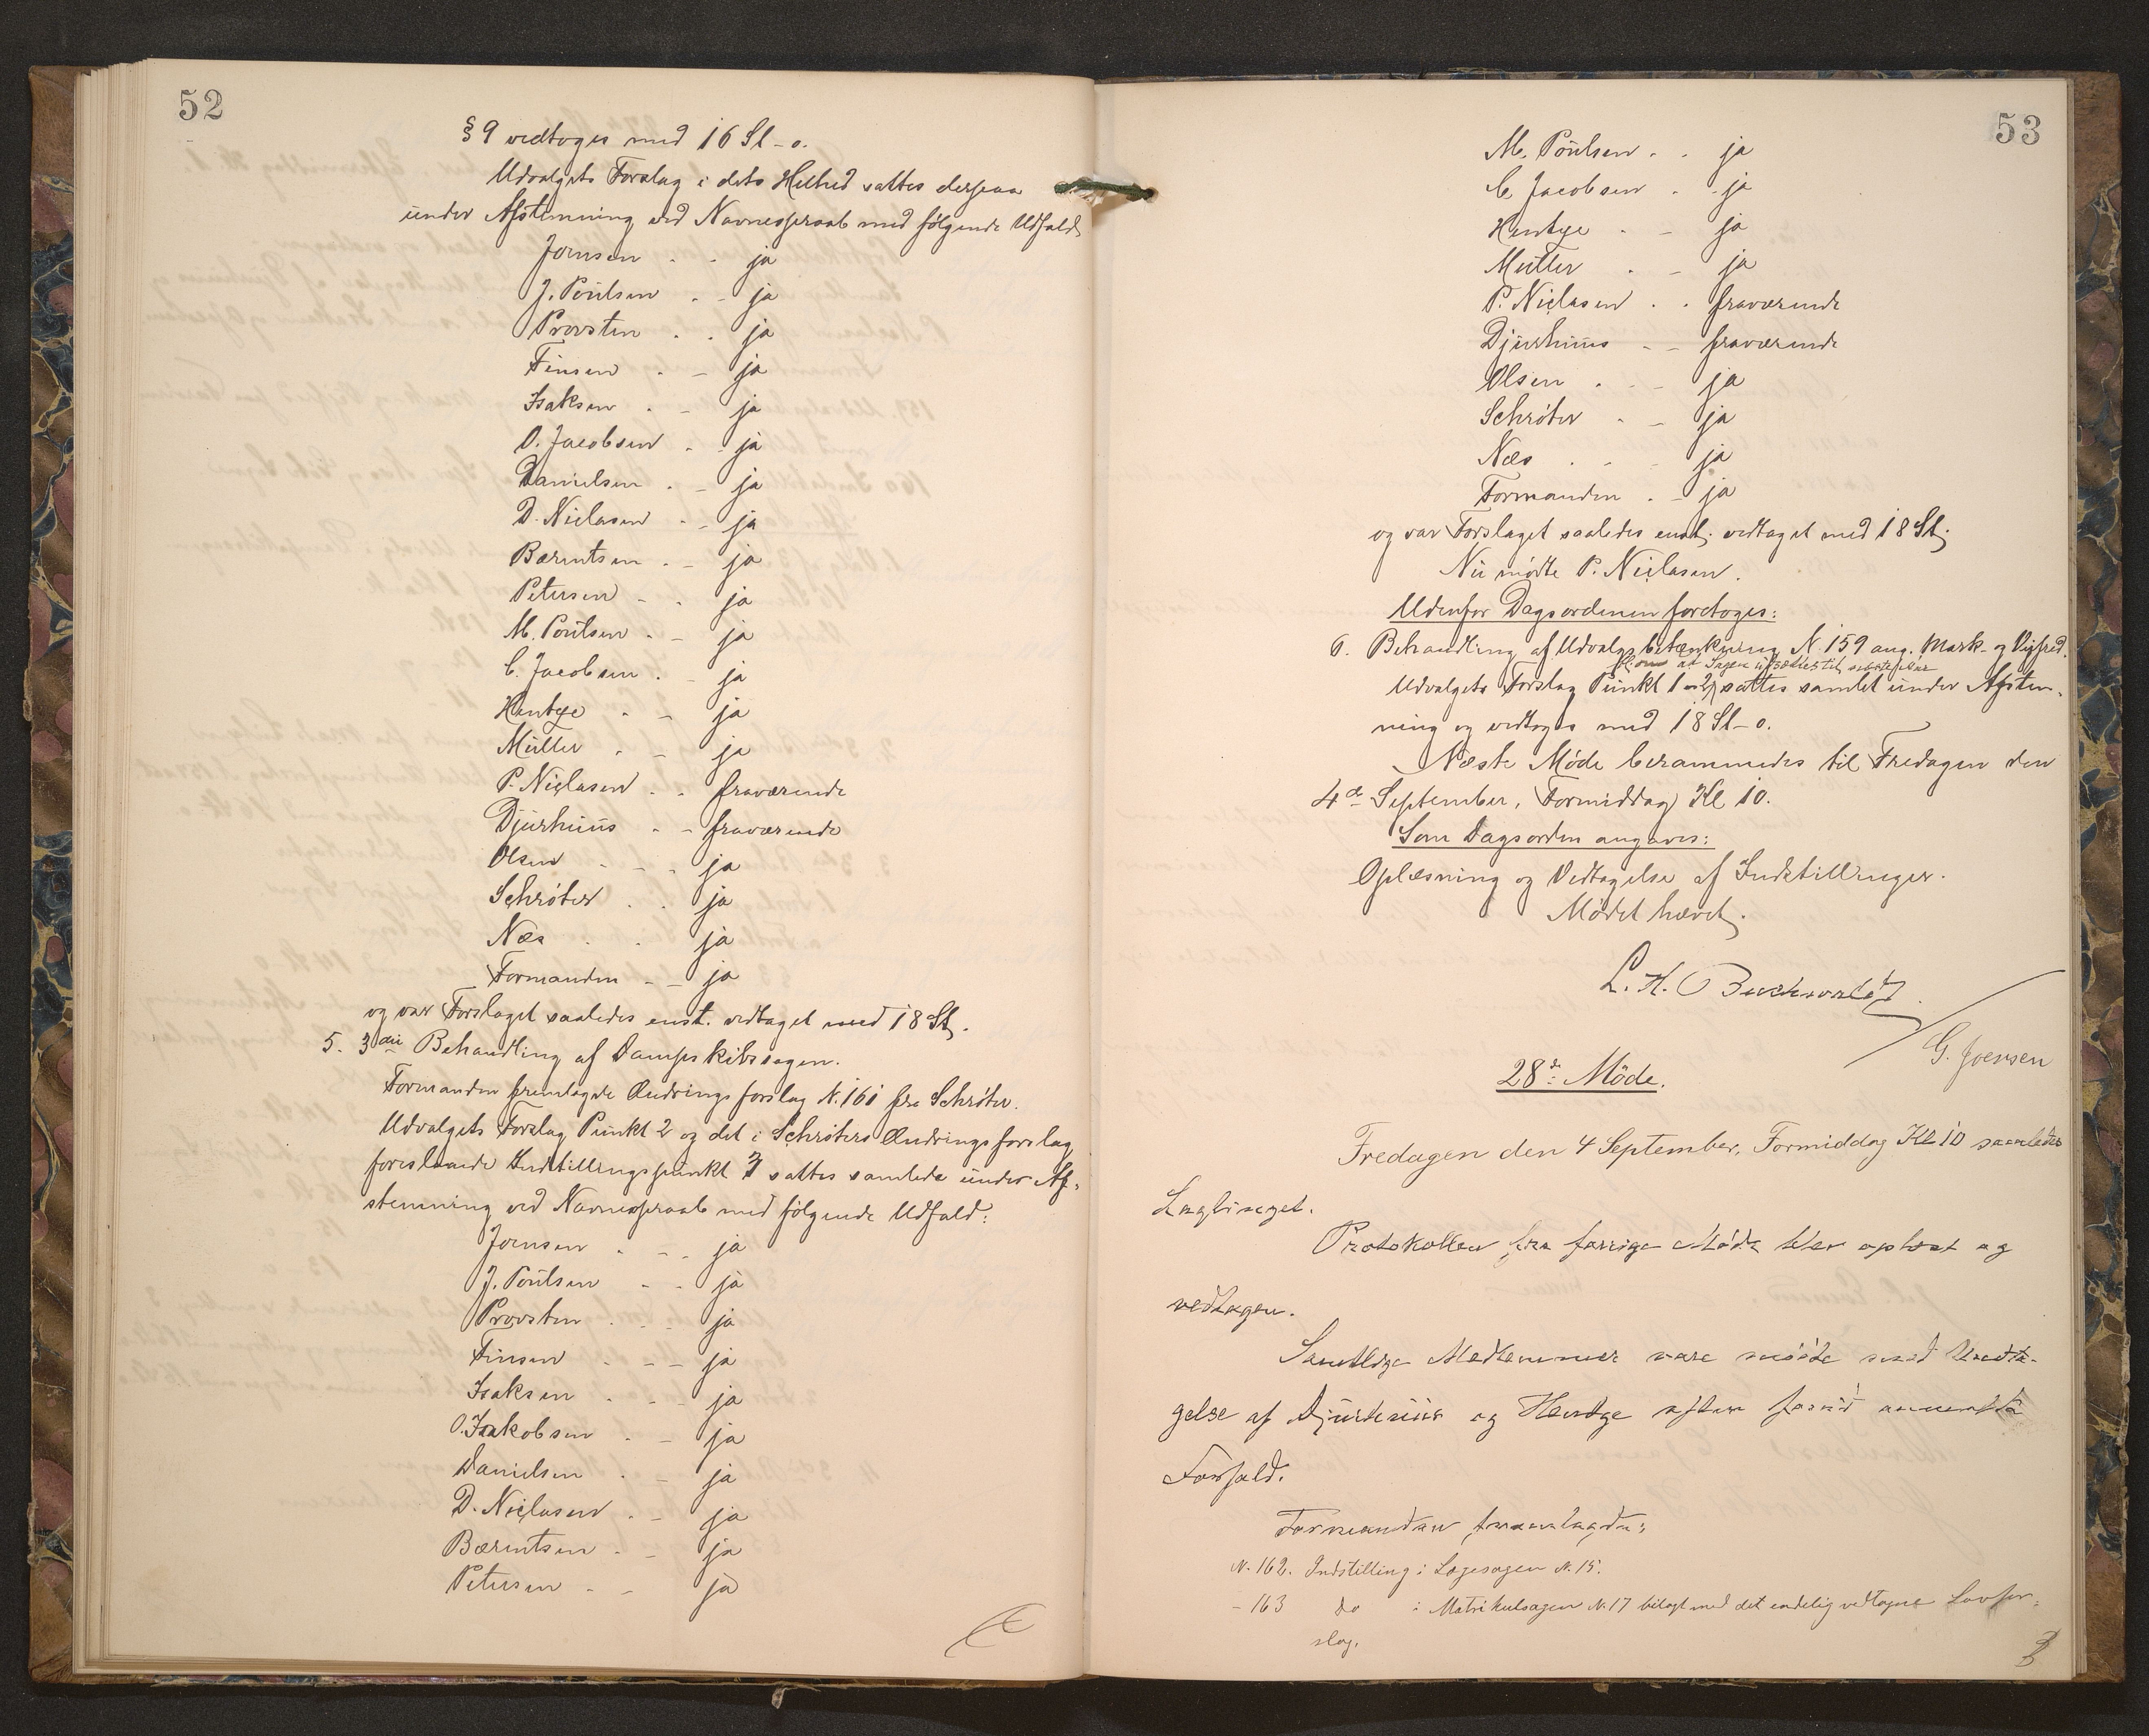 52
§ 9 vedtoges med 16 St - o.
Udvalgets Forslag i dets Helhed sattes derpaa
under Afstemning ved Navneopraab med følgende Udfald
Joensen - - ja
J. Poulsen - - ja
Provsten - - ja
Finsen - - ja
Isaksen - - ja
O. Jacobsen - - ja
Danielsen - - ja
D. Niclasen - - ja
Bærentsen - - ja
Petersen - - ja
M. Poulsen - - ja
C. Jacobsen - - ja
Hentze - - ja
Müller - - ja
P. Niclasen - - fraværende
Djurhuus - - fraværende
Olsen - - - ja
Schröter - - ja
Næs - - ja
Formanden - - ja
og var Forslaget saaledes enst. vedtaget med 18 St.
5. 3die Behandling af Dampskibssagen.
Formanden fremlagde Ændringsforslag N. 161 fra Schröter.
Udvalgets Forslag Punkt 2 og det i Schröters Ændringsforslag
foreslaaede Indstillingspunkt 3 sattes samlede under Af-
stemning ved Navneopraab med følgende Udfald:
Joensen - - - ja
J. Poulsen - - ja
Provsten - - - ja
Finsen - - - ja
Isaksen - - - ja
O. Jakobsen - - ja
Danielsen - - ja
D. Niclasen - - ja
Bærentsen - - ja
Petersen - - ja
53
M. Poulsen - - ja
C. Jacobsen - - ja
Hentze - - ja
Müller - - ja
P. Niclasen - - fraværende
Djurhuus - - fraværende
Olsen - - - ja
Schröter - - ja
Næs - - - ja
Formanden - - ja
og var Forslaget saaledes enst. vedtaget med 18 St.
Nu mødte P. Niclasen.
Udenfor Dagsordenen foretoges:
6. Behandling af Udvalgsbetænkning N. 159 ang. Mark- og Vejfred.
om at Sagen udsættes til
Udvalgets Forslag Punkt 1 - 2 sattes samlet under Afstem-
ning og vedtoges med 18 St - o.
Næste Møde berammedes til Fredagen den
4de September, Formiddag Kl 10.
Som Dagsorden angaves:
Oplæsning og Vedtagelse af Indstillinger.
Mødet hævet.
L. H. Buchwaldt
G. Joensen
28de Møde.
Fredagen den 4 September, Formiddag Kl 10 samledes
Lagtinget.
Protokollen fra forrige Møde blev oplæst og
vedtagen.
Samtlige Medlemmer vare mødte med Undta-
gelse af Djurhuus og Hentze efter forud anmeldte
Forfald.
Formanden fremlagde:
N. 162. Indstilling i Lægesagen N. 15.
- 163 do i Matrikulsagen N. 17 bilagt med det endelig vedtagne Lovfor-
slag.